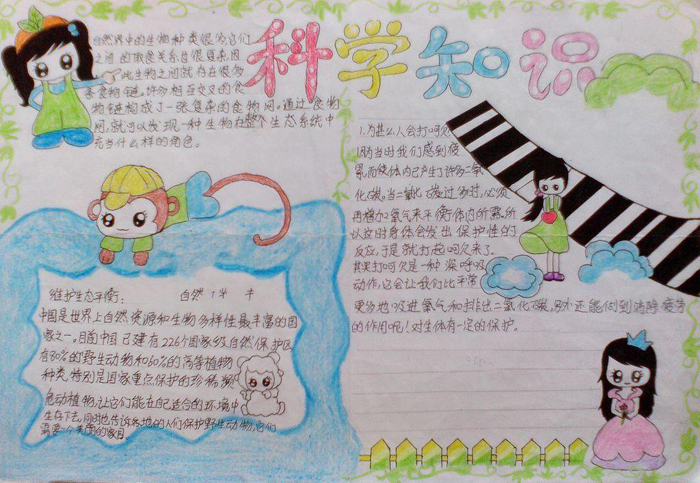 科学知识
自然界中的生物种类很多,它们
之间的捕食关系自很复杂,因
此生物之间就存在很多
条食物链,许多相互交叉的食
物链构成了一张复杂的食物网。通过食物
网,就可以发现一种生物在整个生态系统中
充当什么样的角色。
1.为甚么人会打呵欠
因为当时我们感到疲
累,而使体内已产生了许多二氧
化碳。当二氧化碳过多时,必须
再增加氧气来平衡体内所需,所
以这时身体会发出保护性的
反应,于是就打起呵欠来了。
其实打呵欠是一种深呼吸
动作,它会让我们比平常
更多地吸进氧气和排出二氧化碳,另外还能做到消除疲劳
的作用呢!对生体有一定的保护。
维护生态平衡: 自然
中国是世界上自然资源和生物多样性最丰富的国
家之一。目前中国已建有226个国家级自然保护区
有80%的野生动物和60%的高等植物
种类,特别是国家重点保护的珍稀濒
危动植物,让它们能在自己适合的环境中
生存下去。同时也告诉各地的人们保护野生动物,它们
需要一个美丽的家园